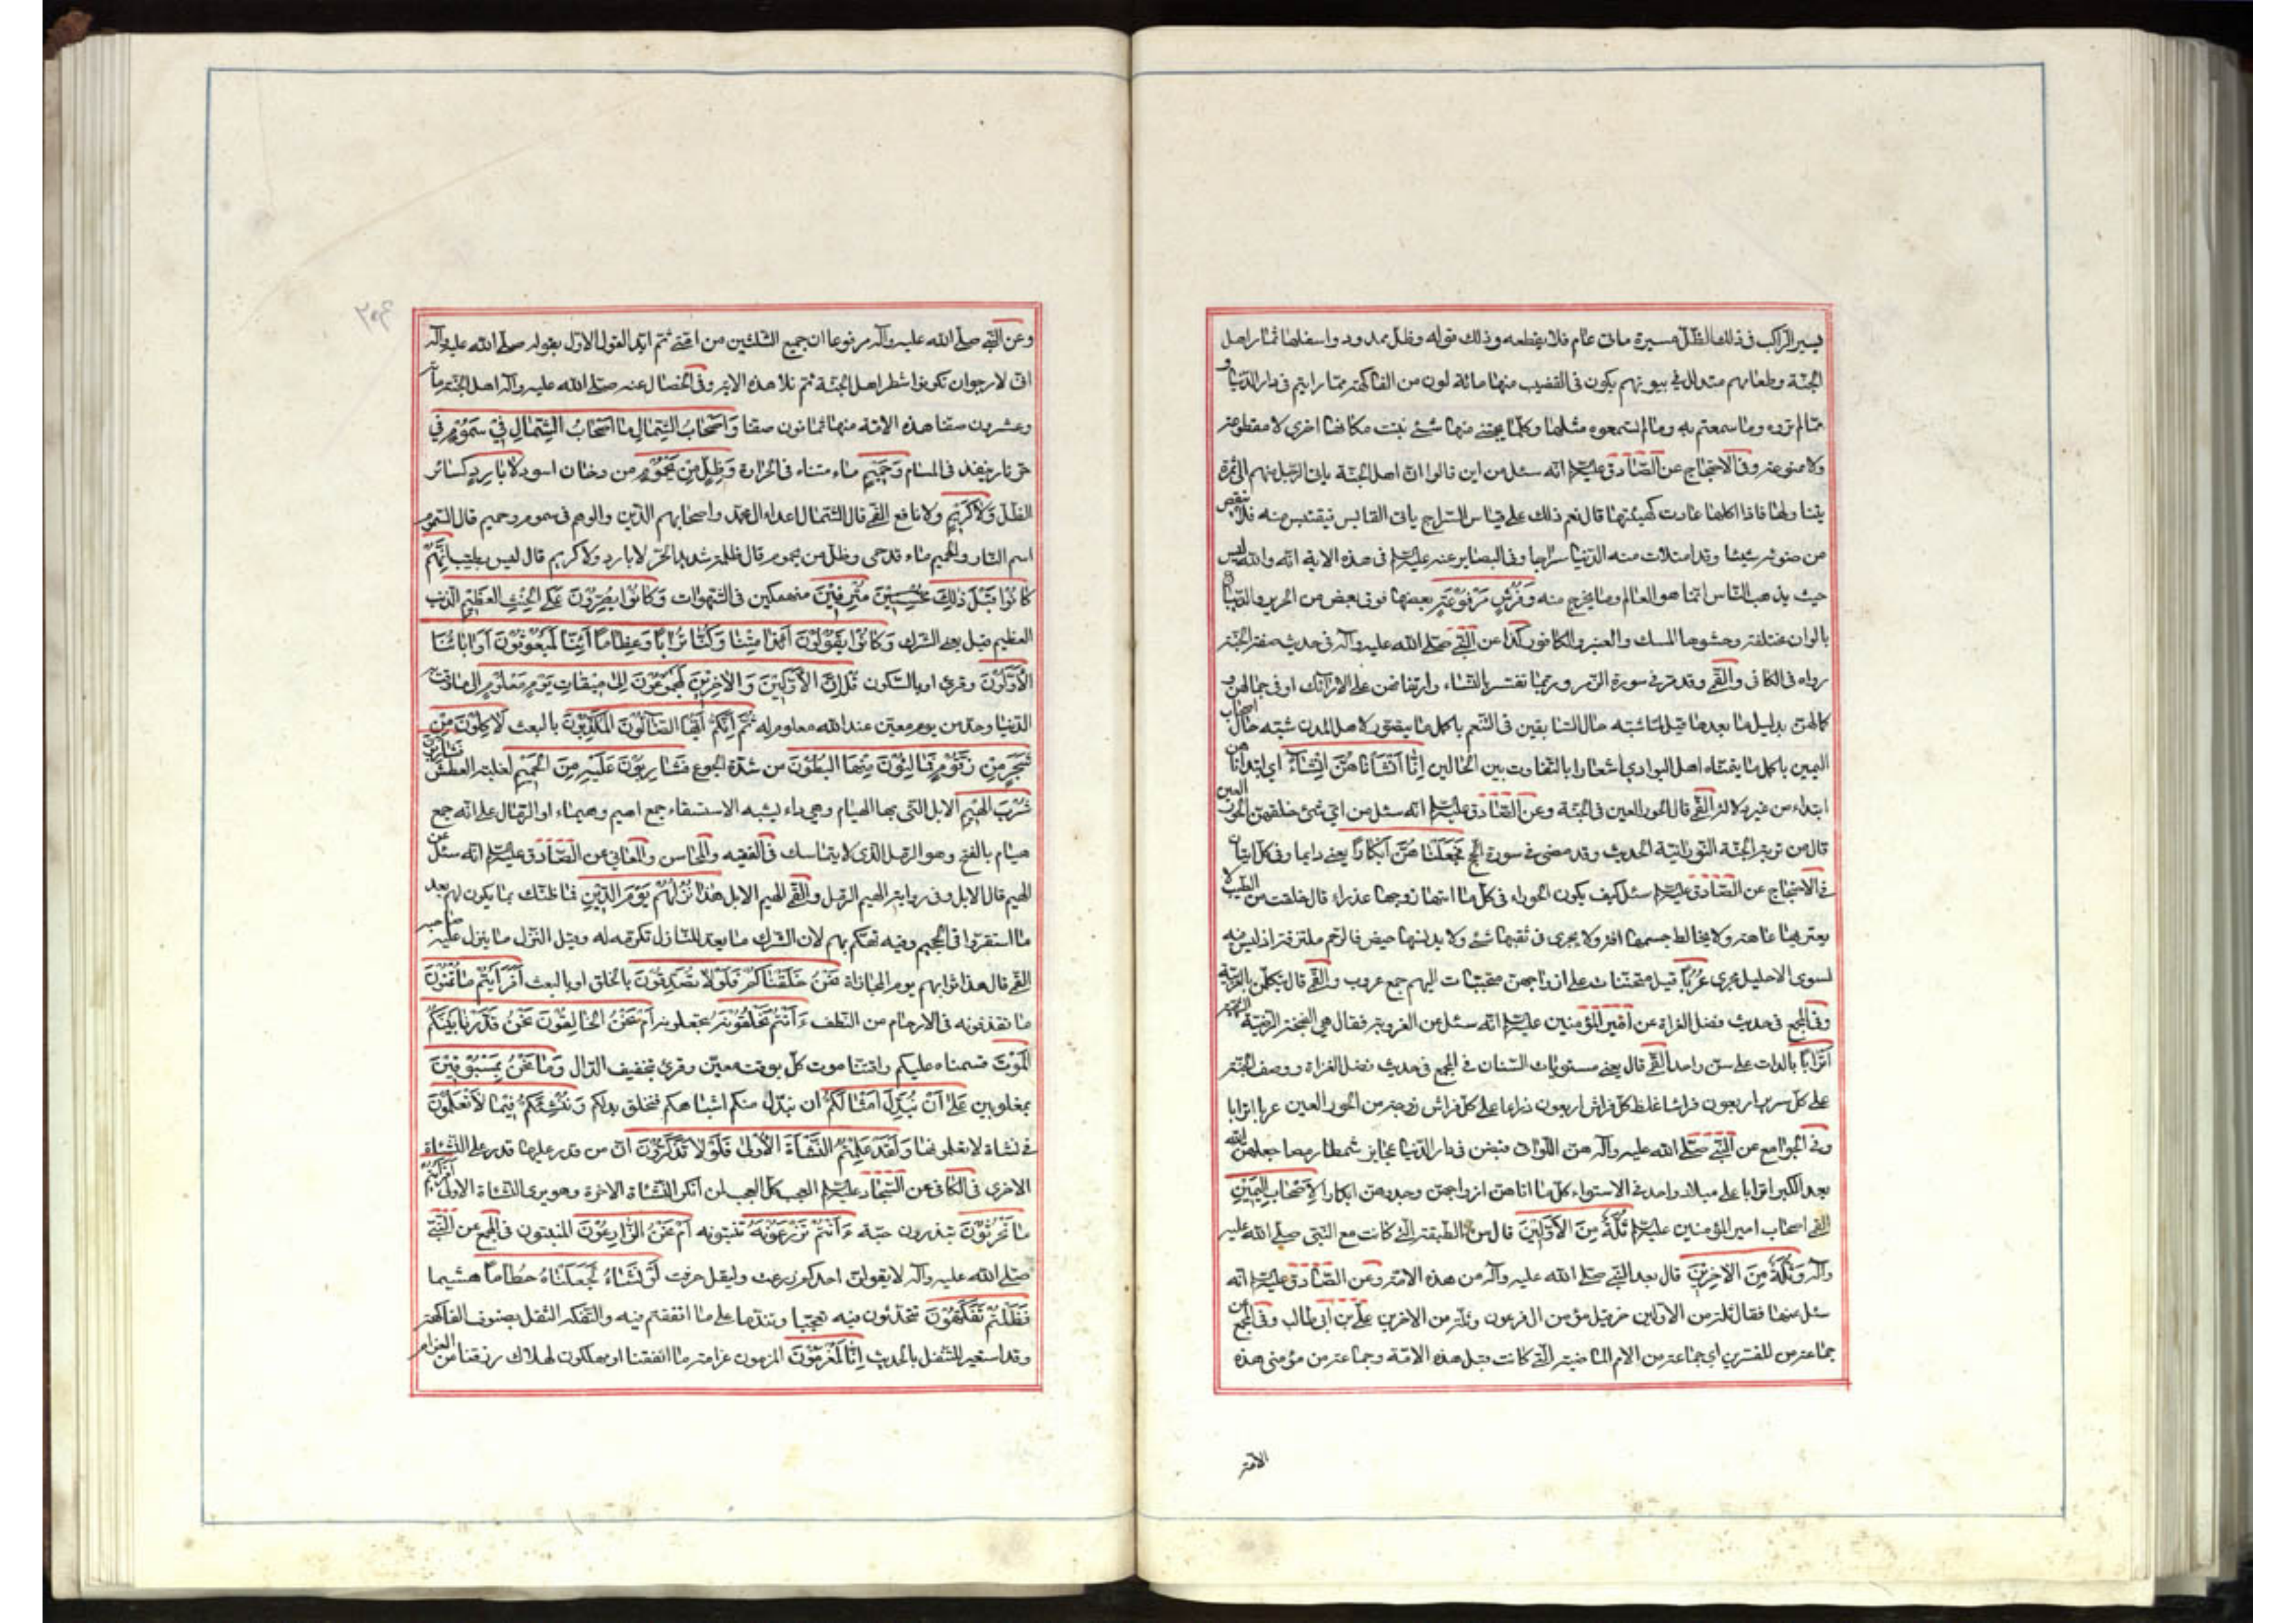 فيسير الراكب في ذلك الظل مسيرة مأتي عام فلا يقطعه وذلك قوله وظل ممدود واسفلها ثمار اهل
الجنة وطعامهم متدلل في بيوتهم يكون في القضيب منها مائة لون من الفاكهة مما رايتم في دار الدنيا و
مما لم تروه وما سمعتم به وما لم تسمعوه مثلها وكلما يجتنى منها شئ نبت مكانها اخرى لا مقطوعة
ولا ممنوعة وفي الاحتجاج عن الصادق عليه السلام انه سئل من اين قالوا ان اهل الجنة ياتي الرجل منهم الى ثمرة
يتناولها فاذا اكلها عادت كهيئتها قال نعم ذلك على قياس السراج ياتي القابس فيقتبس منه فلا ينقص
من ضوئه شيئا وقد امتلات منه الدنيا سراجا وفي البصاير عنه عليه السلام في هذه الاية انه والله ليس
حيث يذهب الناس انما هو العالم وما يخرج منه وَفُرُشٍ مَرْفُوعَةٍ بعضها فوق بعض من الحرير والديباج
بالوان مختلفة وحشوها المسك والعنبر والكافور كذا عن النبي صلى الله عليه وآله في حديث صفة الجنة
رواه في الكافي والقمي وقد مر في سورة الزمر وربما تفسر بالنساء وارتفاعهن على الارائك او في جمالهن و
كمالهن بدليل ما بعدها قيل لما شبه حال السابقين في التنعم باكمل ما يتصور لاهل المدن شبه حال اصحاب
اليمين باكمل ما يتمناه اهل البوادي اشعارا بالتفاوت بين الحالين اِنَّا اَنْشَأْنَاهُنَّ اِنْشَاءً اي ابتدأناهن
ابتداء من غير ولادة القمي قال الحور العين في الجنة وعن الصادق عليه السلام انه سئل من اي شئ خلقهن الحور العين
قال من تربة الجنة النورانية الحديث وقد مضى في سورة الحج فَجَعَلْنَاهُنَّ اَبْكَارًا يعني دايما وفي كل اتيان
في الاحتجاج عن الصادق عليه السلام سئل كيف يكون الحوراء في كل ما اتاها زوجها عذراء قال خلقت من الطيب لا
يعتريها عاهة ولا يخالط جسمها افة ولا يجري في ثقبها شئ ولا يدنسها حيض فالرحم ملتزقة اذ ليس فيه
لسوى الاحليل مجرى عُرُبًا قيل متحننات على ازواجهن متحببات اليهم جمع عروب والقمي قال يتكلمن بالعربية
وفي المجمع في حديث فضل الغزاة عن امير المؤمنين عليه السلام انه سئل عن العروبة فقال هي الغنجة الرضية الشهية
اَتْرَابًا بالدات على سن واحد القمي قال يعني مستويات السنان في المجمع في حديث فضل الغزاة ووصف الجنة
على كل سرير اربعون فراشا غلظ كل فراش اربعون ذراعا على كل فراش زوجة من الحور العين عربا اترابا
وفي الجوامع عن النبي صلى الله عليه وآله هن اللواتي قبضن في دار الدنيا عجايز شمطا رمصا جعلهن الله
بعد الكبر اترابا على ميلاد واحد في الاستواء كل ما اتاهن ازواجهن وجدوهن ابكارا لِاَصْحَابِ الْيَمِينِ
القمي اصحاب امير المؤمنين عليه السلام ثُلَّةٌ مِنَ الْاَوَّلِينَ قال من الطبقة التي كانت مع النبي صلى الله عليه
وآله وَثُلَّةٌ مِنَ الْاخِرِينَ قال بعد النبي صلى الله عليه وآله من هذه الامة وعن الصادق عليه السلام انه
سئل عنها فقال ثلة من الاولين حزقيل مؤمن ال فرعون وثلة من الاخرين علي بن ابي طالب وفي المجمع عن
جماعة من المفسرين اي جماعة من الامم الماضية التي كانت قبل هذه الامة وجماعة من مؤمني هذه
الامة
وعن النبي صلى الله عليه وآله مرفوعا ان جميع الثلثين من امتي ثم ايد القول الاول بقوله صلى الله عليه وآله
اني لارجو ان تكونوا شطر اهل الجنة ثم تلا هذه الاية وفي الخصال عنه صلى الله عليه وآله اهل الجنة مأة
وعشرون صفا هذه الامة منها ثمانون صفا وَاَصْحَابُ الشِّمَالِ مَا اَصْحَابُ الشِّمَالِ فِي سَمُومٍ في
حر نار ينفذ في المسام وَحَمِيمٍ ماء متناه في الحرارة وَظِلٍّ مِنْ يَحْمُومٍ من دخان اسود لَا بَارِدٍ كسائر
الظل وَلَا كَرِيمٍ ولا نافع القمي قال الشمال اعداء ال محمد واصحابهم الذين والوهم في سموم وحميم قال السموم
اسم النار والحميم ماء قد حمى وظل من يحموم قال ظلمة شديد الحر لا بارد ولا كريم قال ليس بطيب اِنَّهُمْ
كَانُوا قَبْلَ ذَلِكَ مُتْرَفِينَ منهمكين في الشهوات وَكَانُوا يُصِرُّونَ عَلَى الْحِنْثِ الْعَظِيمِ الذنب
العظيم قيل يعني الشرك وَكَانُوا يَقُولُونَ اَئِذَا مِتْنَا وَكُنَّا تُرَابًا وَعِظَامًا اَئِنَّا لَمَبْعُوثُونَ اَوَابَاؤُنَا
الْاَوَّلُونَ وقرئ او بالسكون قُلْ اِنَّ الْاَوَّلِينَ وَالْاخِرِينَ لَمَجْمُوعُونَ اِلَى مِيقَاتِ يَوْمٍ مَعْلُومٍ الى ما وقت به
الدنيا وحد من يوم معين عند الله معلوم له ثُمَّ اِنَّكُمْ اَيُّهَا الضَّالُّونَ الْمُكَذِّبُونَ بالبعث لَاكِلُونَ مِنْ
شَجَرٍ مِنْ زَقُّومٍ فَمَالِئُونَ مِنْهَا الْبُطُونَ من شدة الجوع فَشَارِبُونَ عَلَيْهِ مِنَ الْحَمِيمِ لغلبة العطش فَشَارِبُونَ
شُرْبَ الْهِيمِ الابل التي بها الهيام وهي داء يشبه الاستسقاء جمع اهيم وهيماء او الرمال على انه جمع
هيام بالفتح وهو الرمل الذي لا يتماسك في الفقيه والمحاسن والمعاني عن الصادق عليه السلام انه سئل عن
الهيم قال الابل وفي رواية الهيم الرمل والقمي الهيم الابل هَذَا نُزُلُهُمْ يَوْمَ الدِّينِ فما ظنك بما يكون لهم بعد
ما استقروا في الجحيم وفيه تهكم بهم لان النزل ما يعد للنازل تكرمة له وقيل النزل ما ينزل عليه صاحبه
القمي قال هذا ثوابهم يوم المجازاة نَحْنُ خَلَقْنَاكُمْ فَلَوْلَا تُصَدِّقُونَ بالخلق او بالبعث اَفَرَاَيْتُمْ مَا تُمْنُونَ
ما تقذفونه في الارحام من النطف ءَاَنْتُمْ تَخْلُقُونَهُ تجعلونه بشرا اَمْ نَحْنُ الْخَالِقُونَ نَحْنُ قَدَّرْنَا بَيْنَكُمُ
الْمَوْتَ قسمناه عليكم واقتنا موت كل بوقت معين وقرئ بتخفيف الدال وَمَا نَحْنُ بِمَسْبُوقِينَ
بمغلوبين عَلَى اَنْ نُبَدِّلَ اَمْثَالَكُمْ ان نبدل منكم اشباهكم فنخلق بدلكم وَنُنْشِئَكُمْ فِيمَا لَا تَعْلَمُونَ
في نشاة لا تعلمونها وَلَقَدْ عَلِمْتُمُ النَّشْاَةَ الْاُولَى فَلَوْلَا تَذَكَّرُونَ ان من قدر عليها قدر على النشاة
الاخرى في الكافي عن السجاد عليه السلام العجب كل العجب لمن انكر النشاة الاخرة وهو يرى النشاة الاولى اَفَرَاَيْتُمْ
مَا تَحْرُثُونَ تبذرون حبه ءَاَنْتُمْ تَزْرَعُونَهُ تنبتونه اَمْ نَحْنُ الزَّارِعُونَ المنبتون في المجمع عن النبي
صلى الله عليه وآله لا يقولن احدكم زرعت وليقل حرثت لَوْ نَشَاءُ لَجَعَلْنَاهُ حُطَامًا هشيما
فَظَلْتُمْ تَفَكَّهُونَ تتحدثون فيه تعجبا وتندما على ما انفقتم فيه والتفكه التنقل بصنوف الفاكهة
وقد استعير للتنقل بالحديث اِنَّا لَمُغْرَمُونَ لملزمون غرامة ما انفقنا او مهلكون لهلاك رزقنا من الغرام